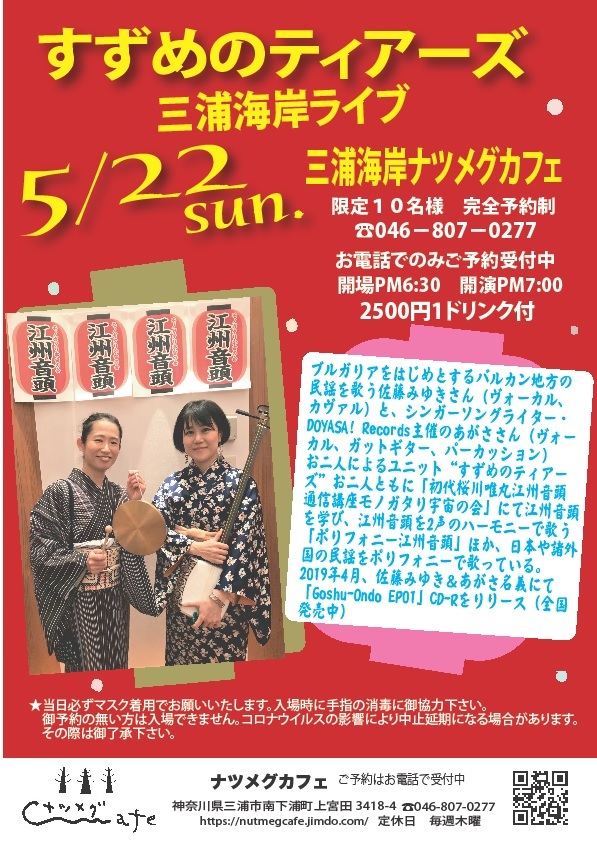 すずめのティアーズ
三浦海岸ライブ
5/22 sun.
三浦海岸ナツメグカフェ
限定１０名様　完全予約制
☎046－807－0277
お電話でのみご予約受付中
開場PM6:30　開演PM7:00
2500円1ドリンク付
江州音頭
江州音頭
江州音頭
江州音頭
ブルガリアをはじめとするバルカン地方の
民謡を歌う佐藤みゆきさん（ヴォーカル、
カヴァル）と、シンガーソングライター・
DOYASA! Records主催のあがささん（ヴォー
カル、ガットギター、パーカッション）
お二人によるユニット“すずめのティアー
ズ”お二人ともに「初代桜川唯丸江州音頭
通信講座モノガタリ宇宙の会」にて江州音頭
を学び、江州音頭を2声のハーモニーで歌う
「ポリフォニー江州音頭」ほか、日本や諸外
国の民謡をポリフォニーで歌っている。
2019年4月、佐藤みゆき＆あがさ名義にて
「Goshu-Ondo EP01」CD-Rをリリース（全国
発売中）
★当日必ずマスク着用でお願いいたします。入場時に手指の消毒に御協力下さい。
御予約の無い方は入場できません。コロナウイルスの影響により中止延期になる場合があります。
その際は御了承下さい。
ナツメグ Cafe
ナツメグカフェ　ご予約はお電話で受付中
神奈川県三浦市南下浦町上宮田 3418-4 ☎046-807-0277
https://nutmegcafe.jimdo.com/　定休日　毎週木曜